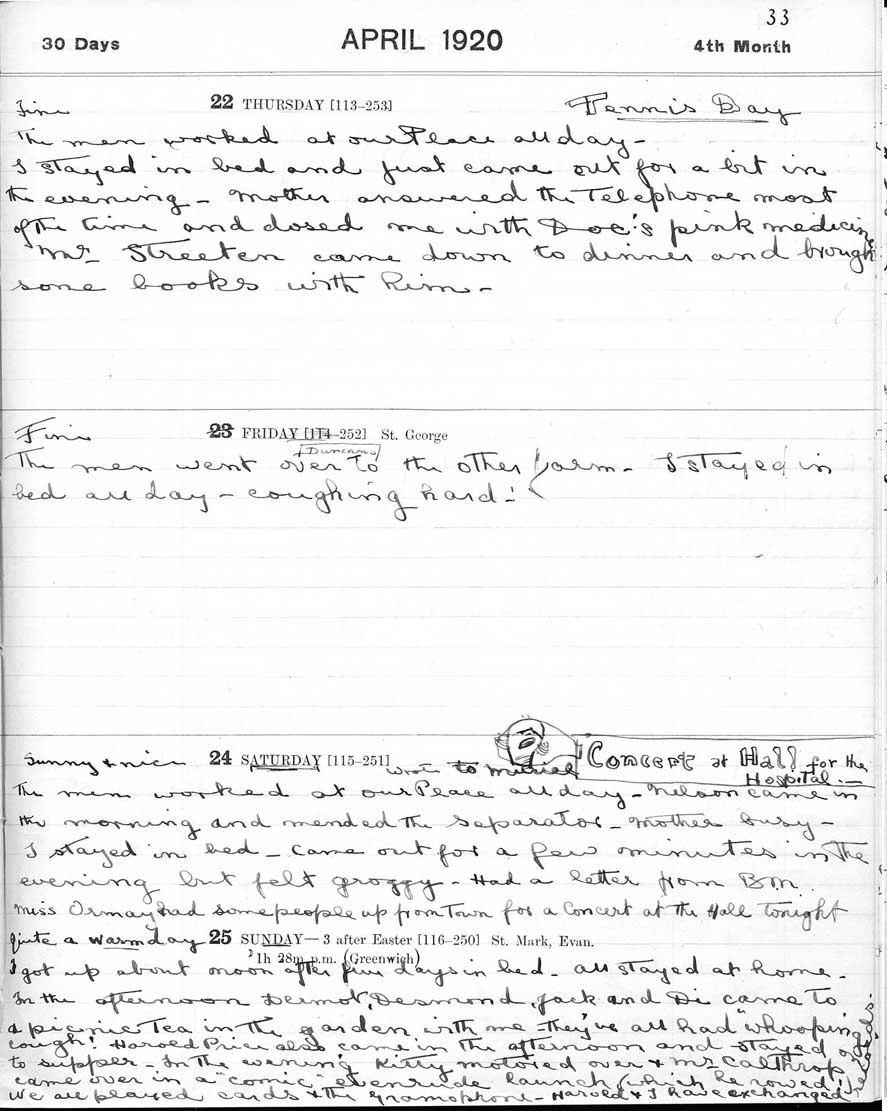 33
30 Days APRIL 1920 4th Month
22 THURSDAY [113–253]
Fine Tennis Day
The men worked at our Place all day –
I stayed in bed and just came out for a bit in
the evening – Mother answered the Telephone most
of the time and dosed me with Doc's pink medicine
Mr Streeten came down to dinner and brough
some books with him –
Fine 23 FRIDAY [114–252] St. George
Duncans
The men went over to the other farm – I stayed in
bed all day – coughing hard!
Sunny & nice 24 SATURDAY [115–251] wrote to Muriel
Concert at Hall for the
Hospital. –
The men worked at our Place all day – Nelson came in
the morning and mended the separator – Mother busy –
I stayed in bed – came out for a few minutes in the
evening but felt groggy – Had a letter from BM.
Miss Ormay had some people up from Town for a Concert at the Hall tonight
Quite a warm day 25 SUNDAY—3 after Easter [116–250] St. Mark, Evan.
1h 28m p.m. (Greenwich)
I got up about noon after five days in bed – all stayed at home –
In the afternoon Dermot, Desmond, Jack and Di came to
a picnic Tea in the garden with me – they've all had "whooping
cough! Harold Price also came in the afternoon and stayed
to supper – In the evening Kitty motored over & Mr Calthrop
came over in a "comic" evenrude launch (which he rowed!)
We all played cards & the gramophone – Harold & I have exchanged
records.